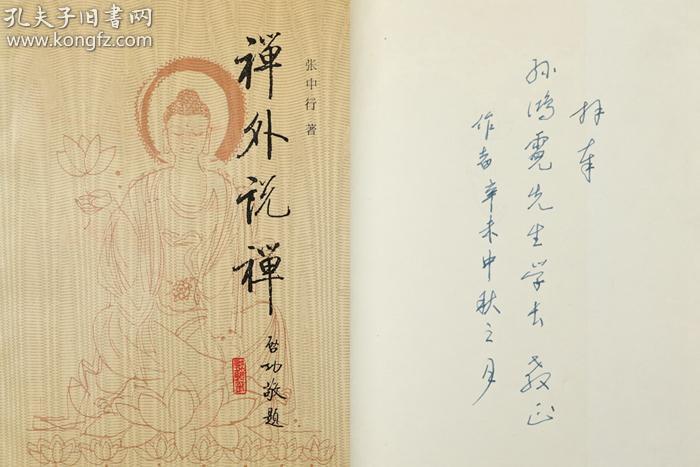 孔夫子旧书网
www.kongfz.com
禅外说禅
张中行 著
启功敬题
拜奉
孙鸿霓先生学长 教正
作者辛未中秋之月